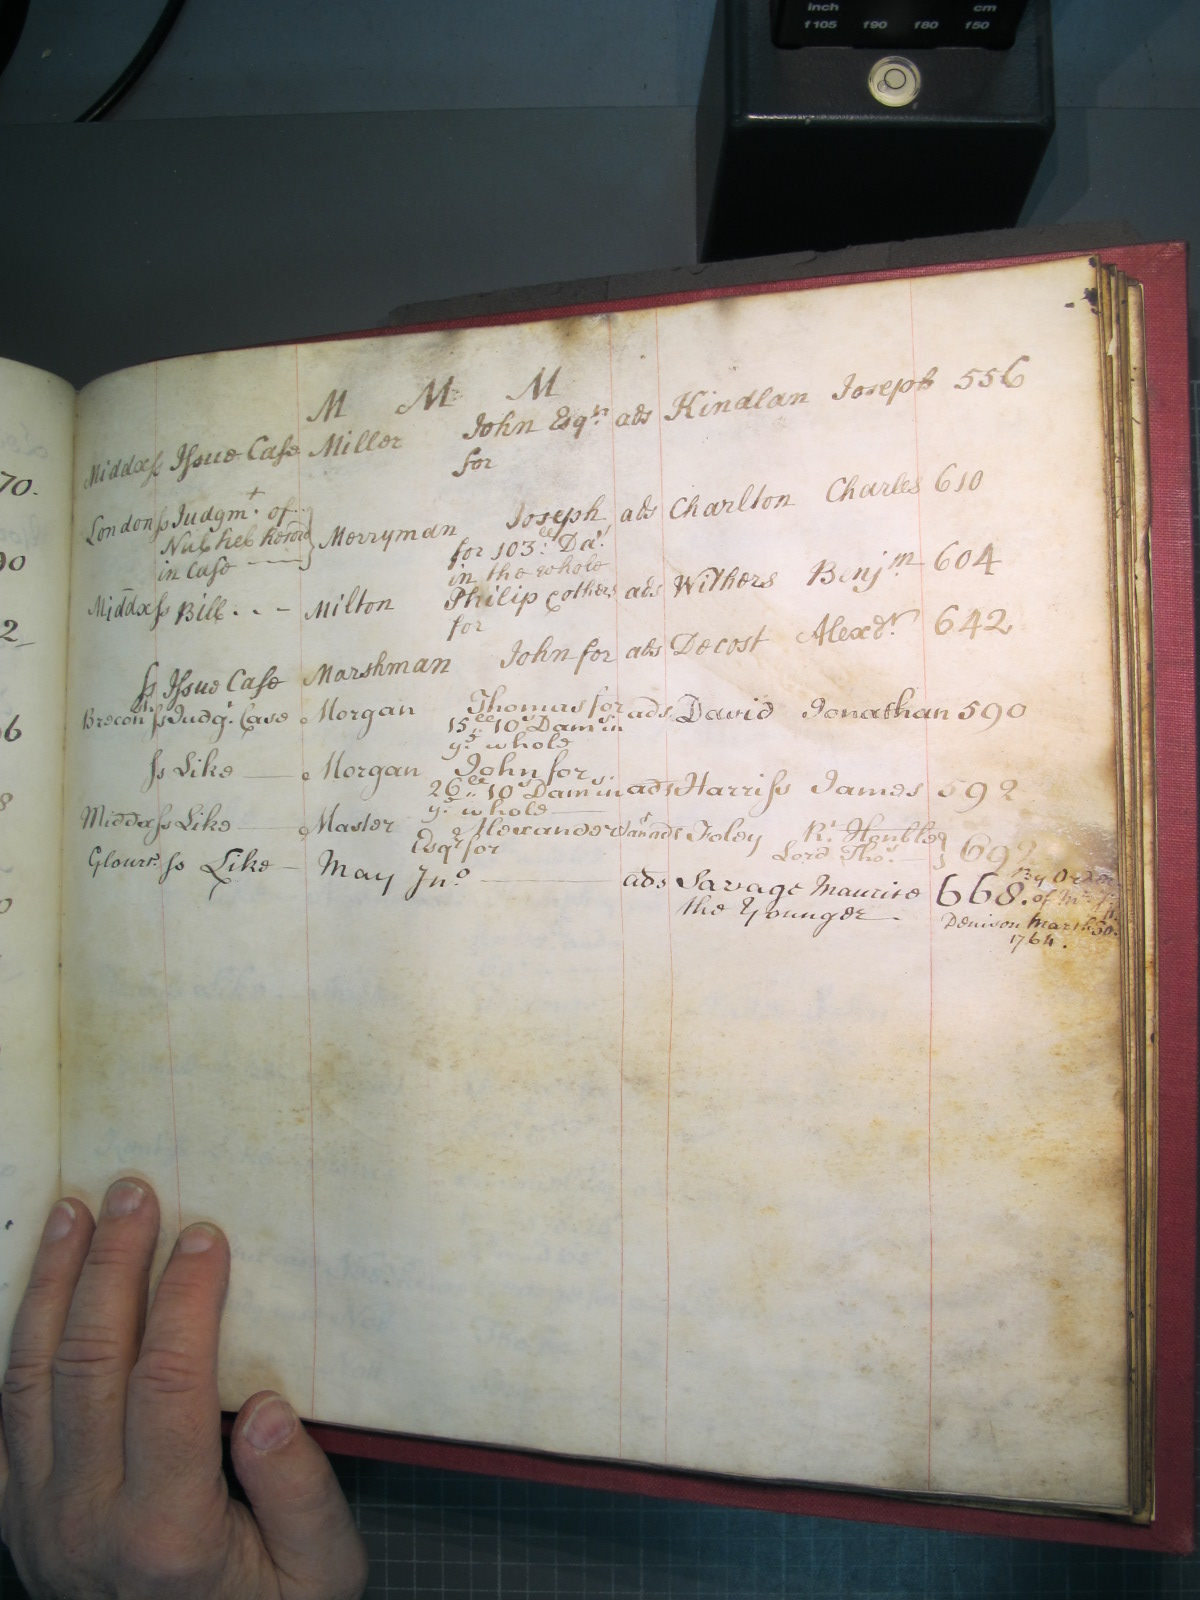 inch cm
f105 f90 f80 f50
M M M
Middx ſs Iſsue Caſe Miller John Esqr. ads Kindlan Joseph 556
for
London ſs Judgmt. of Merryman Joseph ads Charlton Charles 610
Nul tiel Record for 103:ll Da:
in Caſe in the whole
Middx ſs Bill - - - Milton Philip & others ads Withers Benjm. 604
for
ſs Iſsue Caſe Marshman John for ads Decost Alexdr. 642
Brecon ſs Judgt. Case Morgan Thomas for ads David Jonathan 590
15ll: 10s Dam in
ye whole
ſs Like Morgan John for
26ll: 10s Dam in ads Harriſs James 592
ye whole
Middx ſs Like Master Alexander ads Foley Rt. Honble
Esqr for Lord Thos. 692
Glourr. ſs Like May Jno. ads Savage Maurice 668. By Order
the Younger of Mr.
Denison March 30.
1764.
70.
90
2
6
8